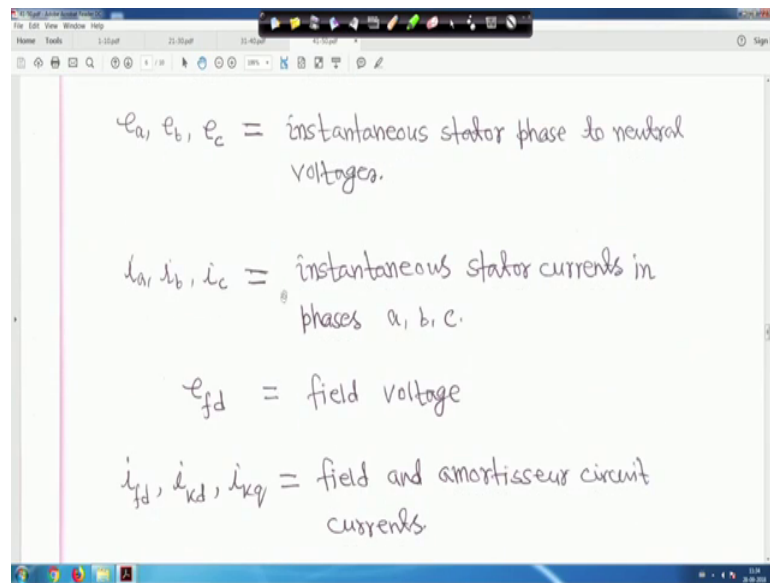 File Edit View Window Help
Home Tools 1-10.pdf 21-30.pdf 31-40.pdf 41-50.pdf × Sign
e_a, e_b, e_c = instantaneous stator phase to neutral
voltages.
i_a, i_b, i_c = instantaneous stator currents in
phases a, b, c.
e_fd = field voltage
i_fd, i_kd, i_kq = field and amortisseur circuit
currents.